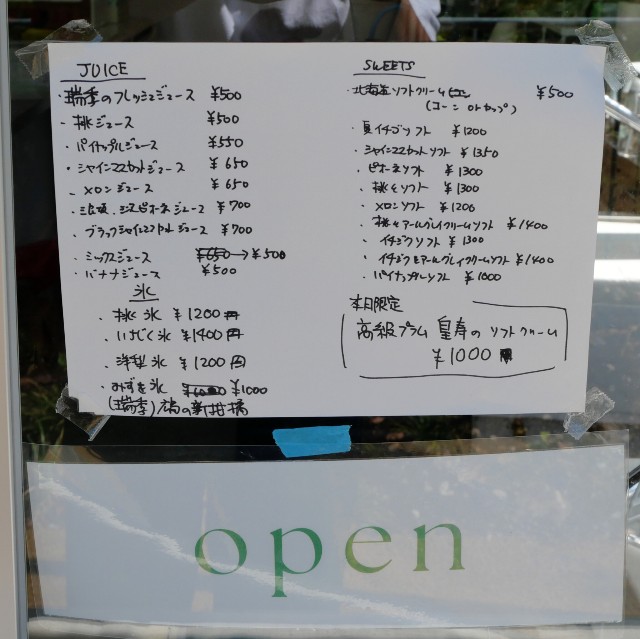 JUICE
・瑞季のフレッシュジュース ¥500
・桃ジュース ¥500
・パイナップルジュース ¥550
・シャインマスカットジュース ¥650
・メロンジュース ¥650
ピオーネジュース ¥700
・ブラックシャインマスカットジュース ¥700
・ミックスジュース ¥650→¥500
・バナナジュース ¥500
氷
・桃氷 ¥1200円
・いちじく氷 ¥1400円
・洋梨氷 ¥1200円
・みずき氷 ¥1000
(瑞季)
SWEETS
・北海道ソフトクリーム ¥500
(コーン or カップ)
・夏イチゴソフト ¥1200
・シャインマスカットソフト ¥1350
・ピオーネソフト ¥1300
・桃ソフト ¥1300
・メロンソフト ¥1200
・桃とアールグレイクリームソフト ¥1400
・イチジクソフト ¥1300
・イチジクとアールグレイクリームソフト ¥1400
・パイナップルソフト ¥1000
本日限定
高級プラム 皇寿の ソフトクリーム
¥1000
open